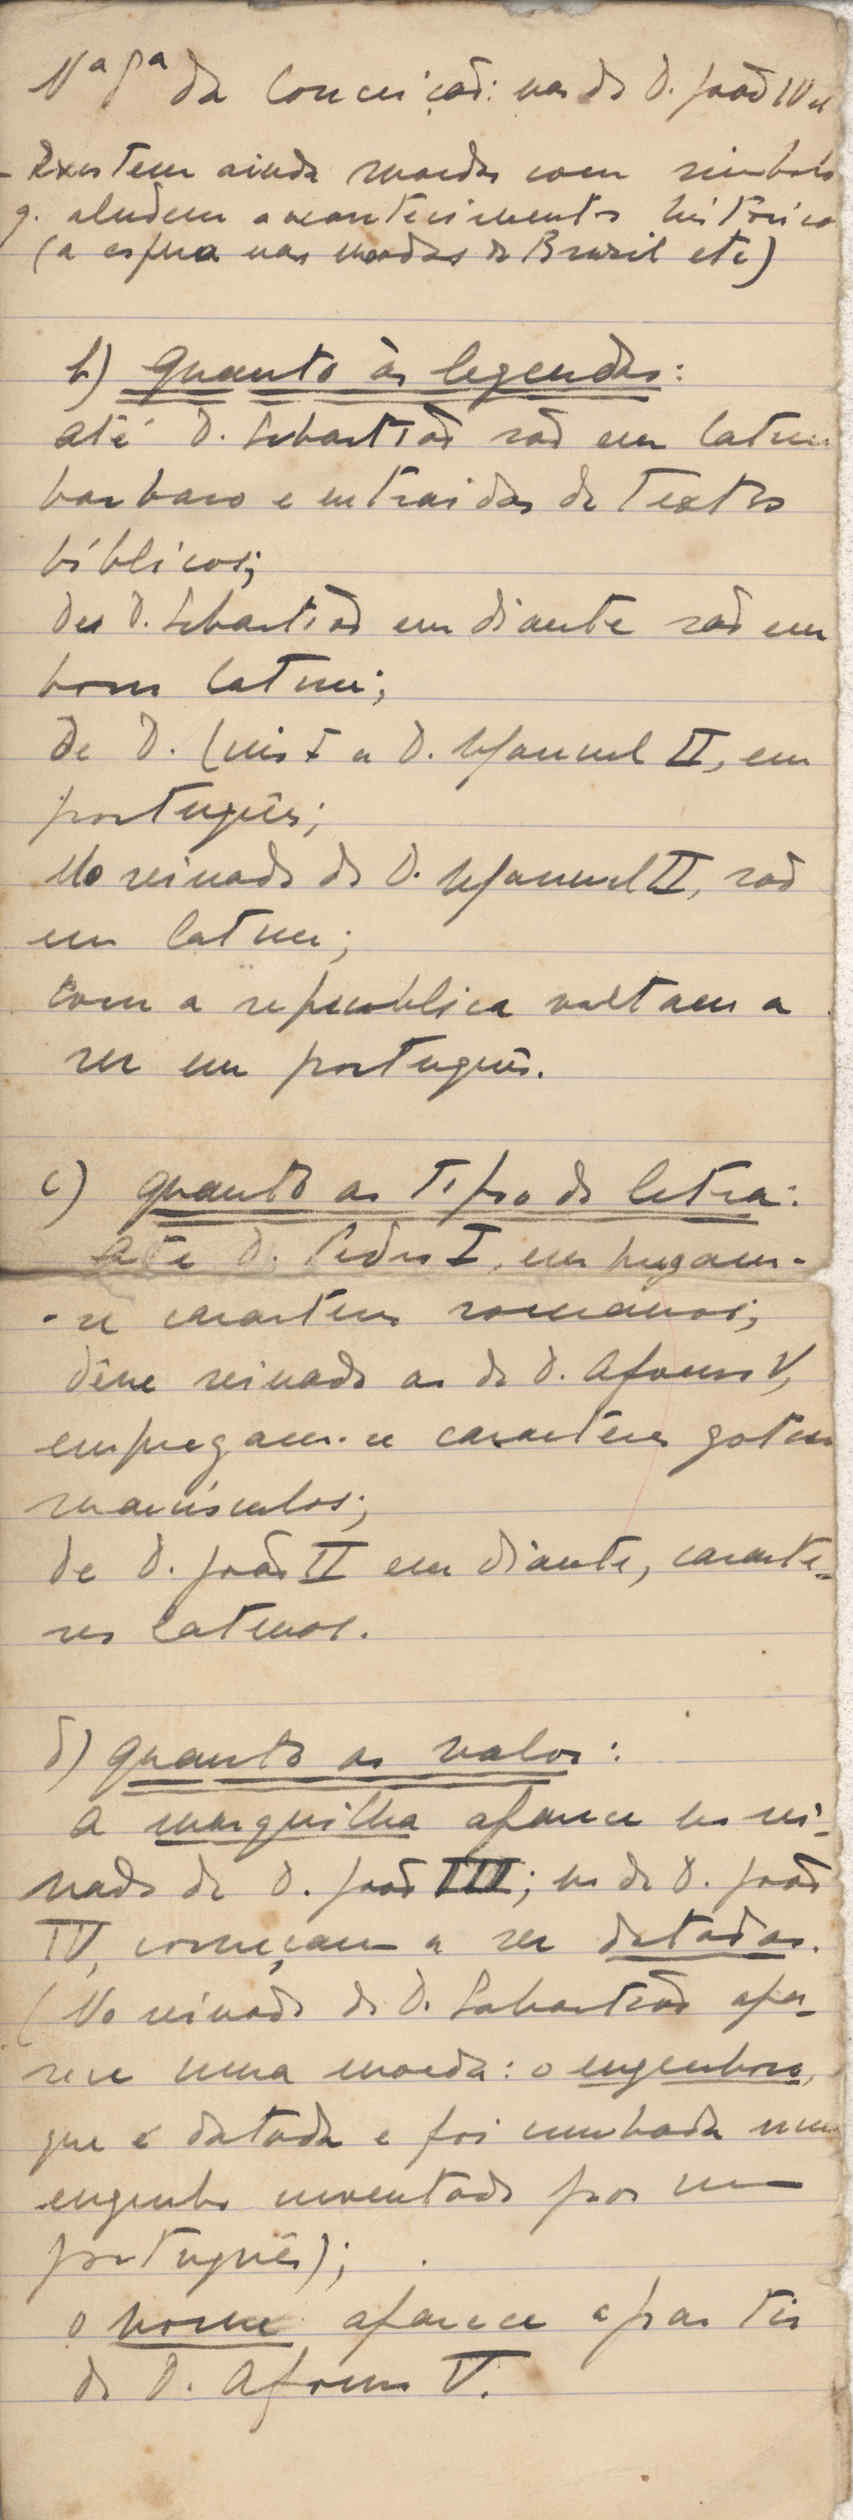 Nª Sª da Conceição: nas de D. João IV e
- Existem ainda moedas com simbolo
q. aludem a acontecimentos histórico
(a esfera nas moedas do Brazil etc)
b) Quanto às legendas:
até D. Sebastião são em latim
barbaro e extraidas de textos
bíblicos;
de D. Sebastião em diante são em
bom latim;
De D. Luis I a D. Manuel II, em
português;
No reinado de D. Manuel II, são
em latim;
com a republica voltam a
ser em português.
c) quanto ao tipo de letra:
Até D. Pedro I, empregam-
-se caracteres romanos;
dêsse reinado ao de D. Afonso V,
empregam-se caracteres goticos
maiúsculos;
de D. João II em diante, caracte-
res latinos.
d) quanto ao valor:
a marquilha aparece no rei-
nado de D. João III; no de D. João
IV, começam a ser datadas.
(No reinado de D. Sebastião apa-
rece uma moeda: o engenhoso,
que é datada e foi cunhada num
engenho inventado por um
português);
o nome aparece a partir
de D. Afonso V.